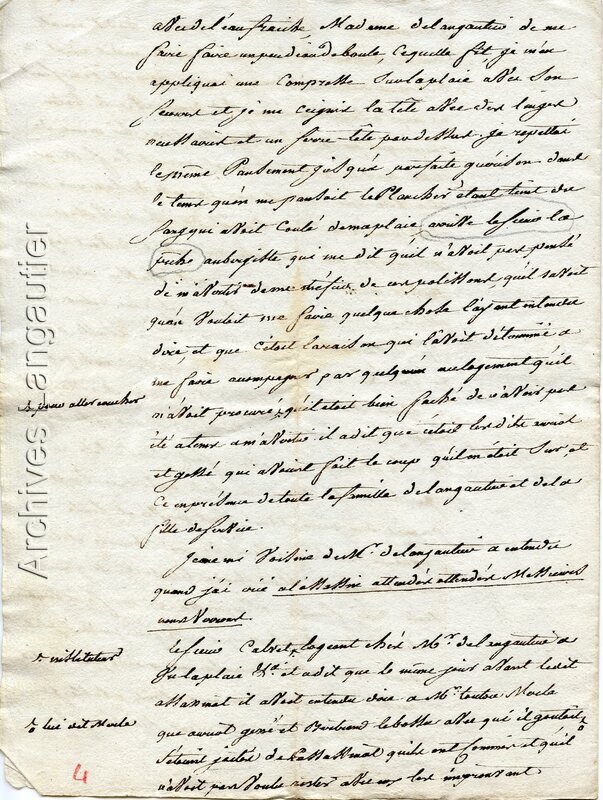 avec de l'eau fraiche, Madame delangautier de me
faire faire un peu d'eau de boule, ce quelle fit, je m'en
appliquai une Compresse sur la plaie avec son
secours et je me ceignis la tête avec des linges
necessaires et un serre-tête par dessus. Je repettai
le même Pansement jusqu'a parfaite guérison dans
le tems qu'on me pansoit le Plancher étant teint du
sang qui avoit coulé de ma plaie arrive le sieur la
aubergiste qui me dit qu'il n'avoit pas pensé
de m'avertir de me méfier de ces polissons qu'il savoit
qu'on vouloit me faire quelque chose l'ayant entendu
dire, et que c'étoit la raison qui l'avoit déterminé a
me faire acompagner par quelqu'un au logement qu'il
m'avoit procuré, qu'il etoit bien faché de n'avoir pas
été a tems a m'avertir il a dit que c'étoit les dits
et qui avoient fait le coup qu'on étoit sur et
ce en présence de toute la famille delangautier et de la
fille de service.
voisine de Mr. delangautier a entendu
quand j'ai crié a l'assassin attendés attendés Messieurs
nous
le sieur Calvet, logeant chés Mr. delangautier a
vu la plaie &a. et a dit que le même jour avant ledit
assassinat il avoit entendu dire a Mr.
que et Bertrand avec qui il goutoit
s'etoient jactés de l'assassinat qu'ils ont commis et qu'il
n'avoit pas voulu rester avec eux les
pour aller coucher
instituteur
lui dit
4
Archives Langautier